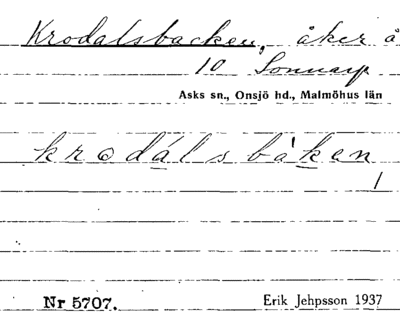 Krodalsbacken, åker å
10 Sonnarp
Asks sn., Onsjö hd., Malmöhus län
krodálsbàken
1
Nr 5707.
Erik Jehpsson 1937